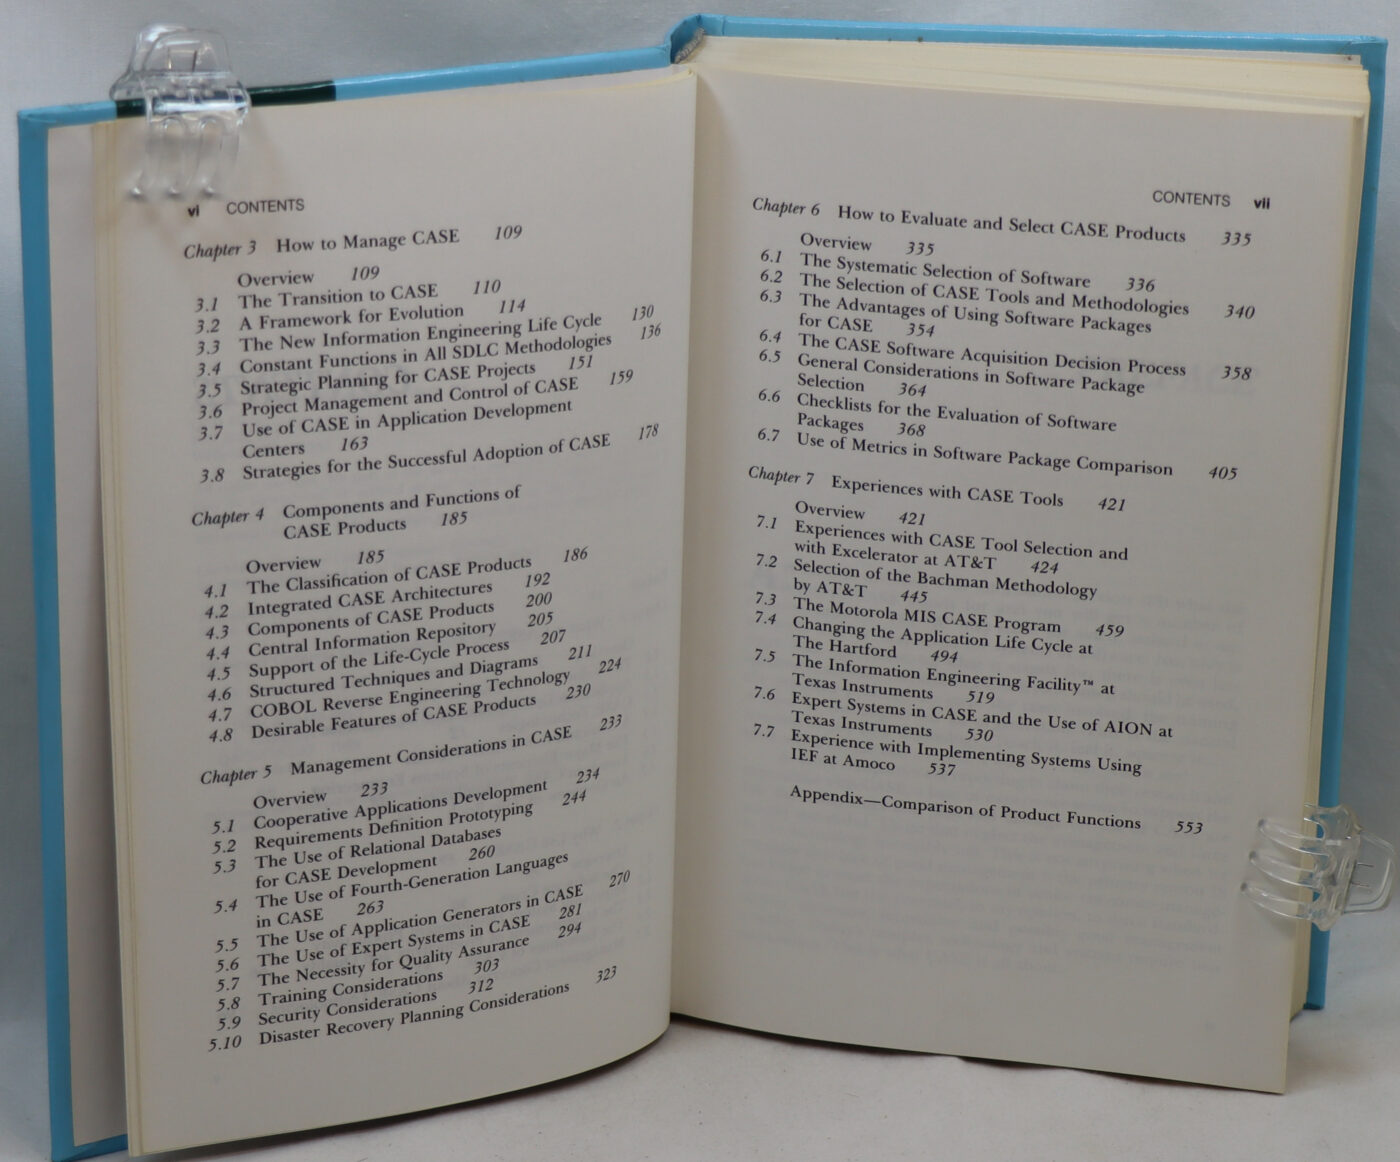 vi CONTENTS
Chapter 3 How to Manage CASE 109
Overview 109
3.1 The Transition to CASE 110
3.2 A Framework for Evolution 114
3.3 The New Information Engineering Life Cycle 130
3.4 Constant Functions in All SDLC Methodologies 136
3.5 Strategic Planning for CASE Projects 151
3.6 Project Management and Control of CASE 159
3.7 Use of CASE in Application Development
Centers 163
3.8 Strategies for the Successful Adoption of CASE 178
Chapter 4 Components and Functions of
CASE Products 185
Overview 185
4.1 The Classification of CASE Products 186
4.2 Integrated CASE Architectures 192
4.3 Components of CASE Products 200
4.4 Central Information Repository 205
4.5 Support of the Life-Cycle Process 207
4.6 Structured Techniques and Diagrams 211
4.7 COBOL Reverse Engineering Technology 224
4.8 Desirable Features of CASE Products 230
Chapter 5 Management Considerations in CASE 233
Overview 233
5.1 Cooperative Applications Development 234
5.2 Requirements Definition Prototyping 244
5.3 The Use of Relational Databases
for CASE Development 260
5.4 The Use of Fourth-Generation Languages
in CASE 263
5.5 The Use of Application Generators in CASE 270
5.6 The Use of Expert Systems in CASE 281
5.7 The Necessity for Quality Assurance 294
5.8 Training Considerations 303
5.9 Security Considerations 312
5.10 Disaster Recovery Planning Considerations 323
CONTENTS vii
Chapter 6 How to Evaluate and Select CASE Products 335
Overview 335
6.1 The Systematic Selection of Software 336
6.2 The Selection of CASE Tools and Methodologies 340
6.3 The Advantages of Using Software Packages
for CASE 354
6.4 The CASE Software Acquisition Decision Process 358
6.5 General Considerations in Software Package
Selection 364
6.6 Checklists for the Evaluation of Software
Packages 368
6.7 Use of Metrics in Software Package Comparison 405
Chapter 7 Experiences with CASE Tools 421
Overview 421
7.1 Experiences with CASE Tool Selection and
with Excelerator at AT&T 424
7.2 Selection of the Bachman Methodology
by AT&T 445
7.3 The Motorola MIS CASE Program 459
7.4 Changing the Application Life Cycle at
The Hartford 494
7.5 The Information Engineering Facility™ at
Texas Instruments 519
7.6 Expert Systems in CASE and the Use of AION at
Texas Instruments 530
7.7 Experience with Implementing Systems Using
IEF at Amoco 537
Appendix—Comparison of Product Functions 553